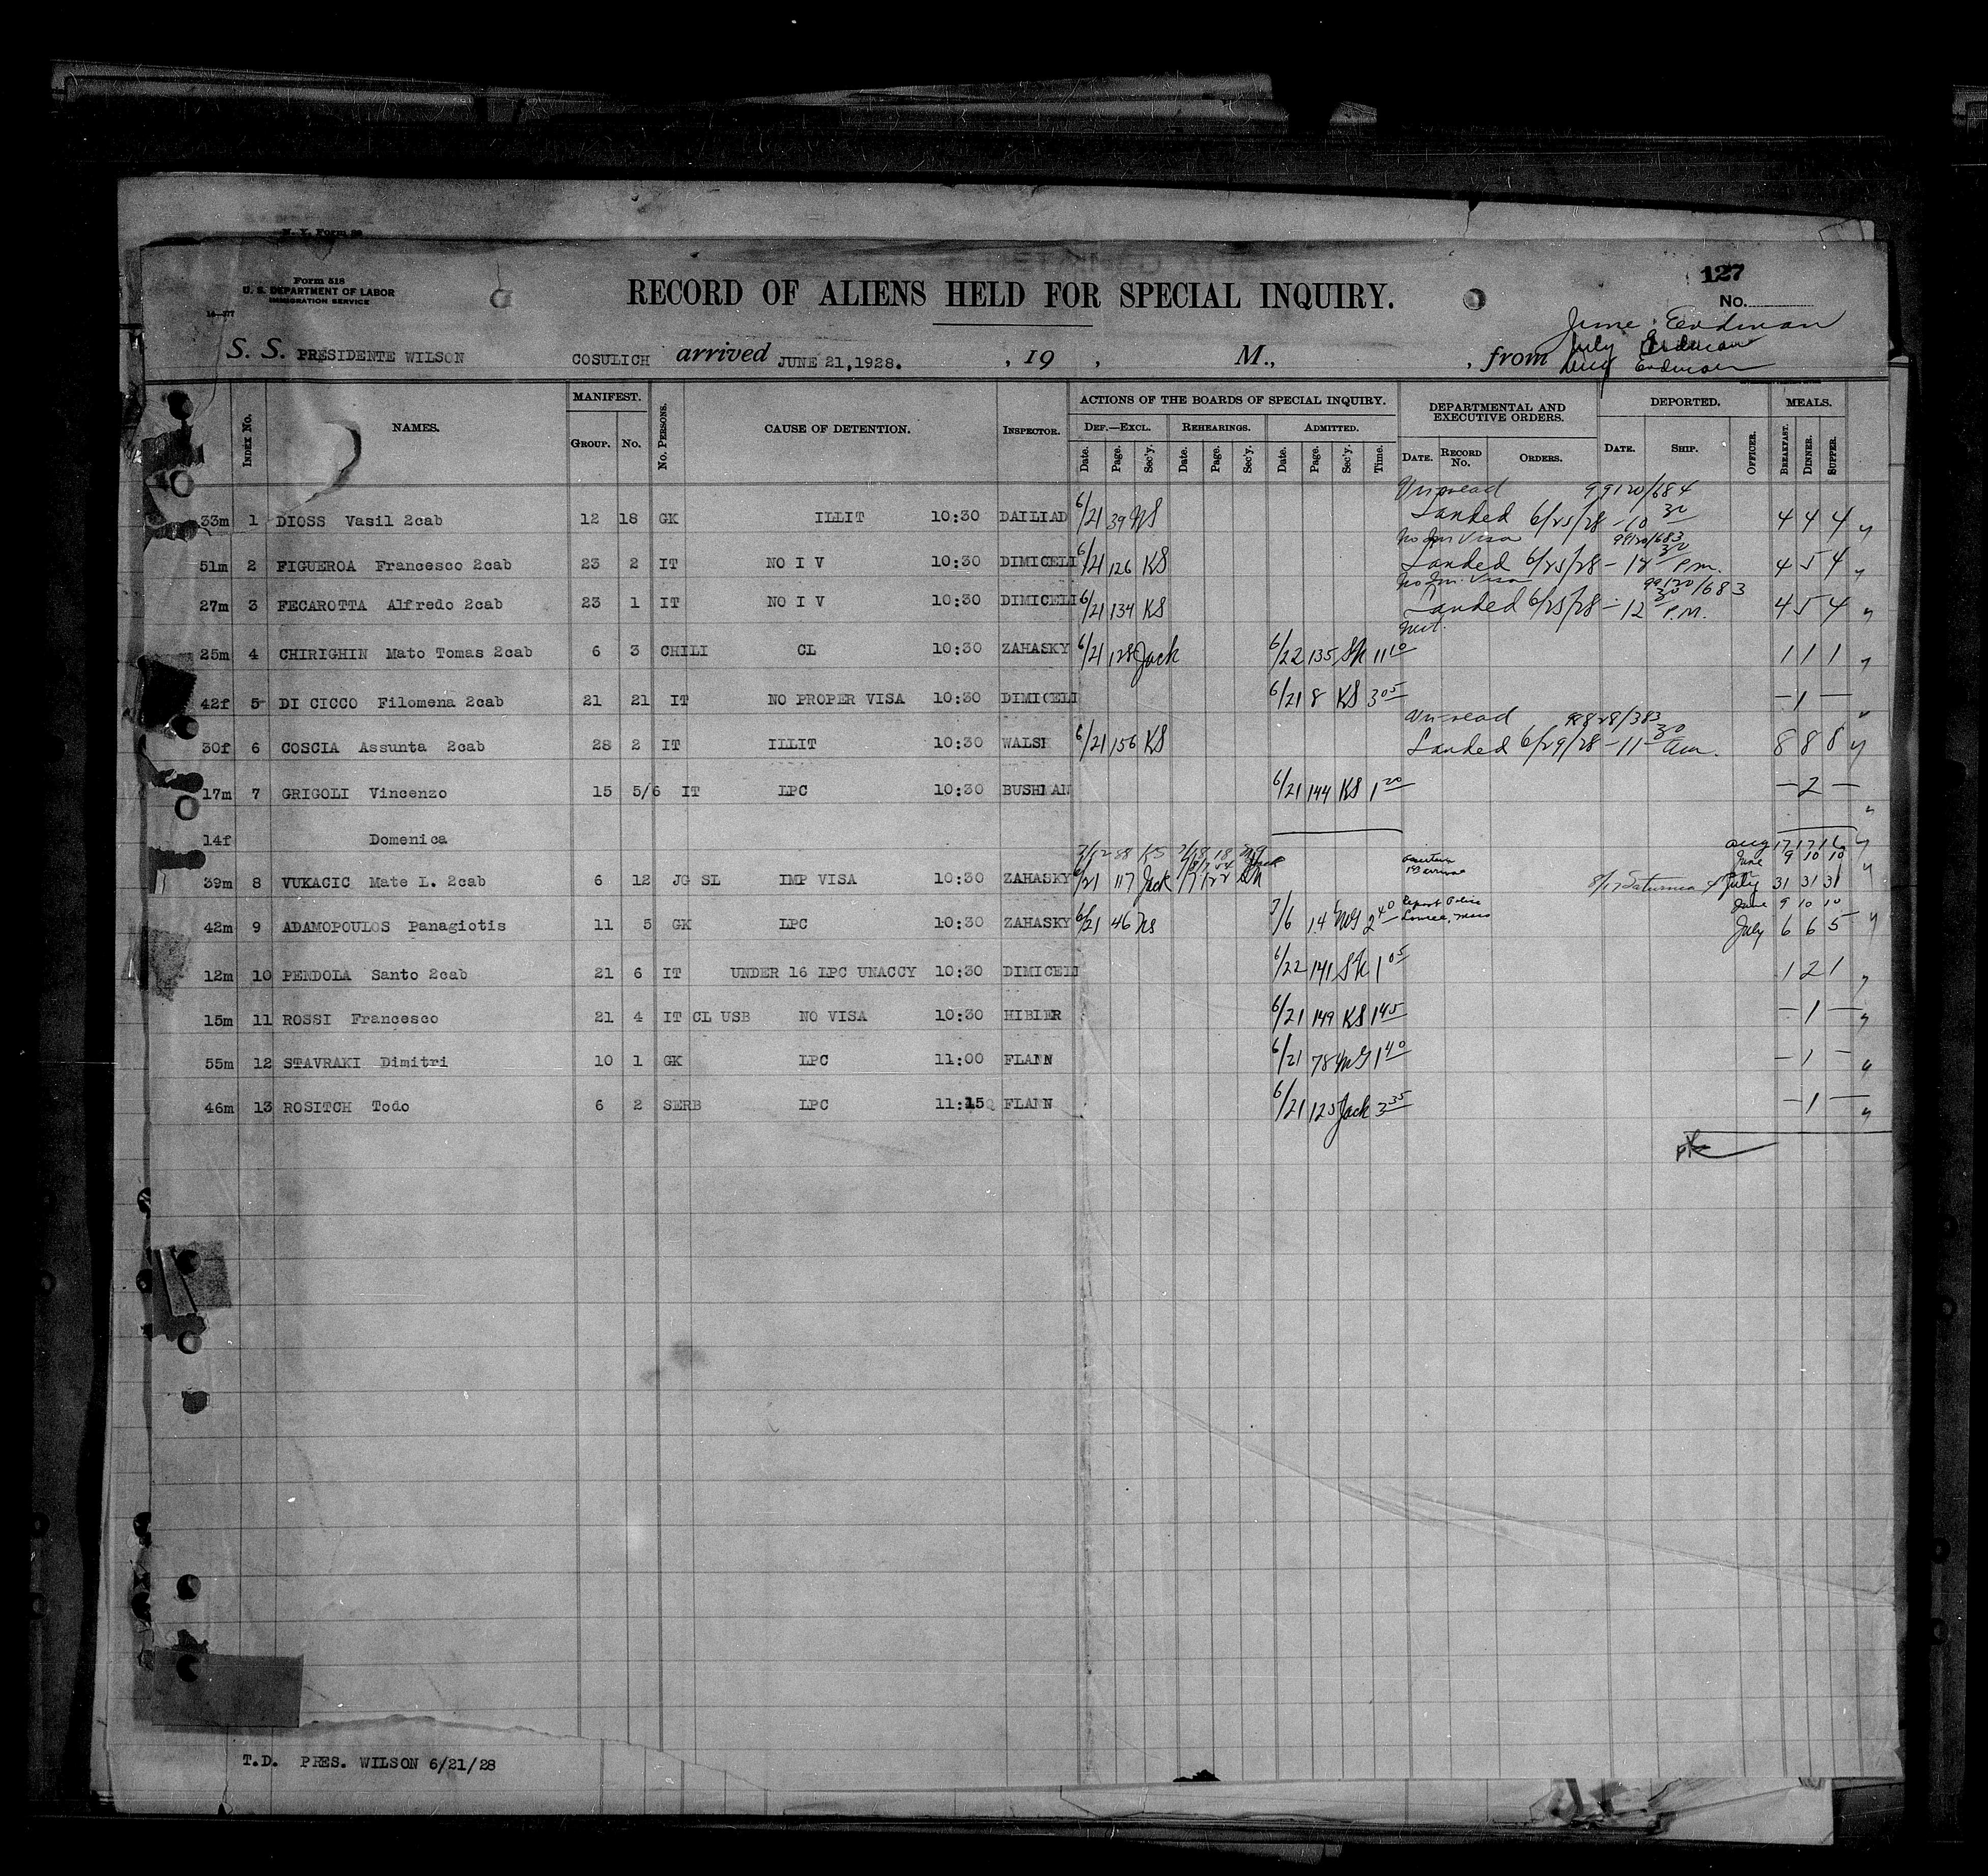 N. Y. Form 99
Form 518
U. S. DEPARTMENT OF LABOR
IMMIGRATION SERVICE
14—577
RECORD OF ALIENS HELD FOR SPECIAL INQUIRY.
127
No.
June Erdman
July Erdman
Aug Erdman
S. S. PRESIDENTE WILSON COSULICH arrived JUNE 21,1928. , 19 , M., , from
Index No. NAMES. MANIFEST. Group. No. No. Persons. CAUSE OF DETENTION. Inspector. ACTIONS OF THE BOARDS OF SPECIAL INQUIRY. Def.—Excl. Date. Page. Sec'y. Rehearings. Date. Page. Sec'y. Admitted. Date. Page. Sec'y. Time. DEPARTMENTAL AND EXECUTIVE ORDERS. Date. Record No. Orders. DEPORTED. Date. Ship. Officer. MEALS. Breakfast. Dinner. Supper.
99120/684
33m 1 DIOSS Vasil 2cab 12 18 GK ILLIT 10:30 DAILIAD 6/21 39 NS Landed 6/25/28 - 10 30 4 4 4
No Im Visa 99120/683
51m 2 FIGUEROA Francesco 2cab 23 2 IT NO I V 10:30 DIMICELI 6/21 126 KS Landed 6/25/28 - 12 30 P.M. 4 5 4
No Im. Visa 99120/683
27m 3 FECAROTTA Alfredo 2cab 23 1 IT NO I V 10:30 DIMICELI 6/21 134 KS Landed 6/25/28 - 12 30 P.M. 4 5 4
25m 4 CHIRIGHIN Mato Tomas 2cab 6 3 CHILI CL 10:30 ZAHASKY 6/21 128 Jack 6/22 135 SK 11 10 1 1 1
42f 5 DI CICCO Filomena 2cab 21 21 IT NO PROPER VISA 10:30 DIMICELI 6/21 8 KS 3 05 — 1 —
98828/383
30f 6 COSCIA Assunta 2cab 28 2 IT ILLIT 10:30 WALSH 6/21 156 KS Landed 6/29/28 - 11 30 am. 8 8 8
17m 7 GRIGOLI Vincenzo 15 5/6 IT LPC 10:30 BUSHMAN 6/21 144 KS 1 20 — 2 —
14f Domenica
Aug 17 17 16
June 9 10 10
39m 8 VUKACIC Mate I. 2cab 6 12 JG SL IMP VISA 10:30 ZAHASKY 6/21 117 Jack 8/17 Saturnia July 31 31 31
June 9 10 10
42m 9 ADAMOPOULOS Panagiotis 11 5 GK LPC 10:30 ZAHASKY 6/21 46 NS 7/6 14 MG 2 40 July 6 6 5
12m 10 PENDOLA Santo 2cab 21 6 IT UNDER 16 LPC UNACCY 10:30 DIMICELI 6/22 141 SK 1 05 1 2 1
15m 11 ROSSI Francesco 21 4 IT CL USB NO VISA 10:30 HIBLER 6/21 149 KS 1 45 — 1 —
55m 12 STAVRAKI Dimitri 10 1 GK LPC 11:00 FLANN 6/21 78 MG 1 40 — 1 —
46m 13 ROSITCH Todo 6 2 SERB LPC 11:15 FLANN 6/21 125 Jack 3 35 — 1 —
T.D. PRES. WILSON 6/21/28